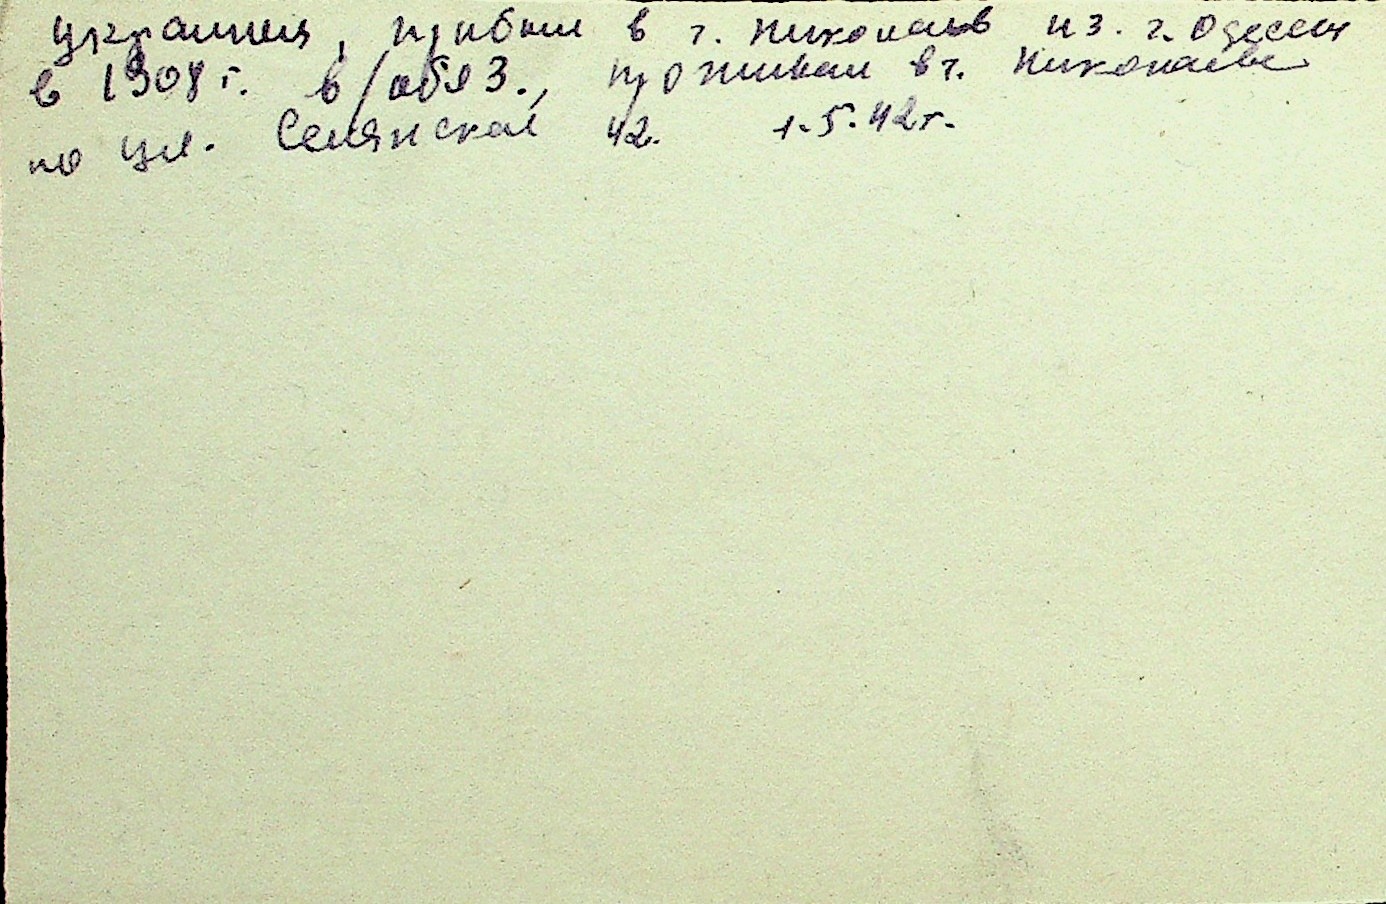 украинец, прибыл в г. Николаев из г. Одессы
в 1908 г. в/обяз., проживал в г. Николаеве
по ул. Селянской 42. 1.5.42г.